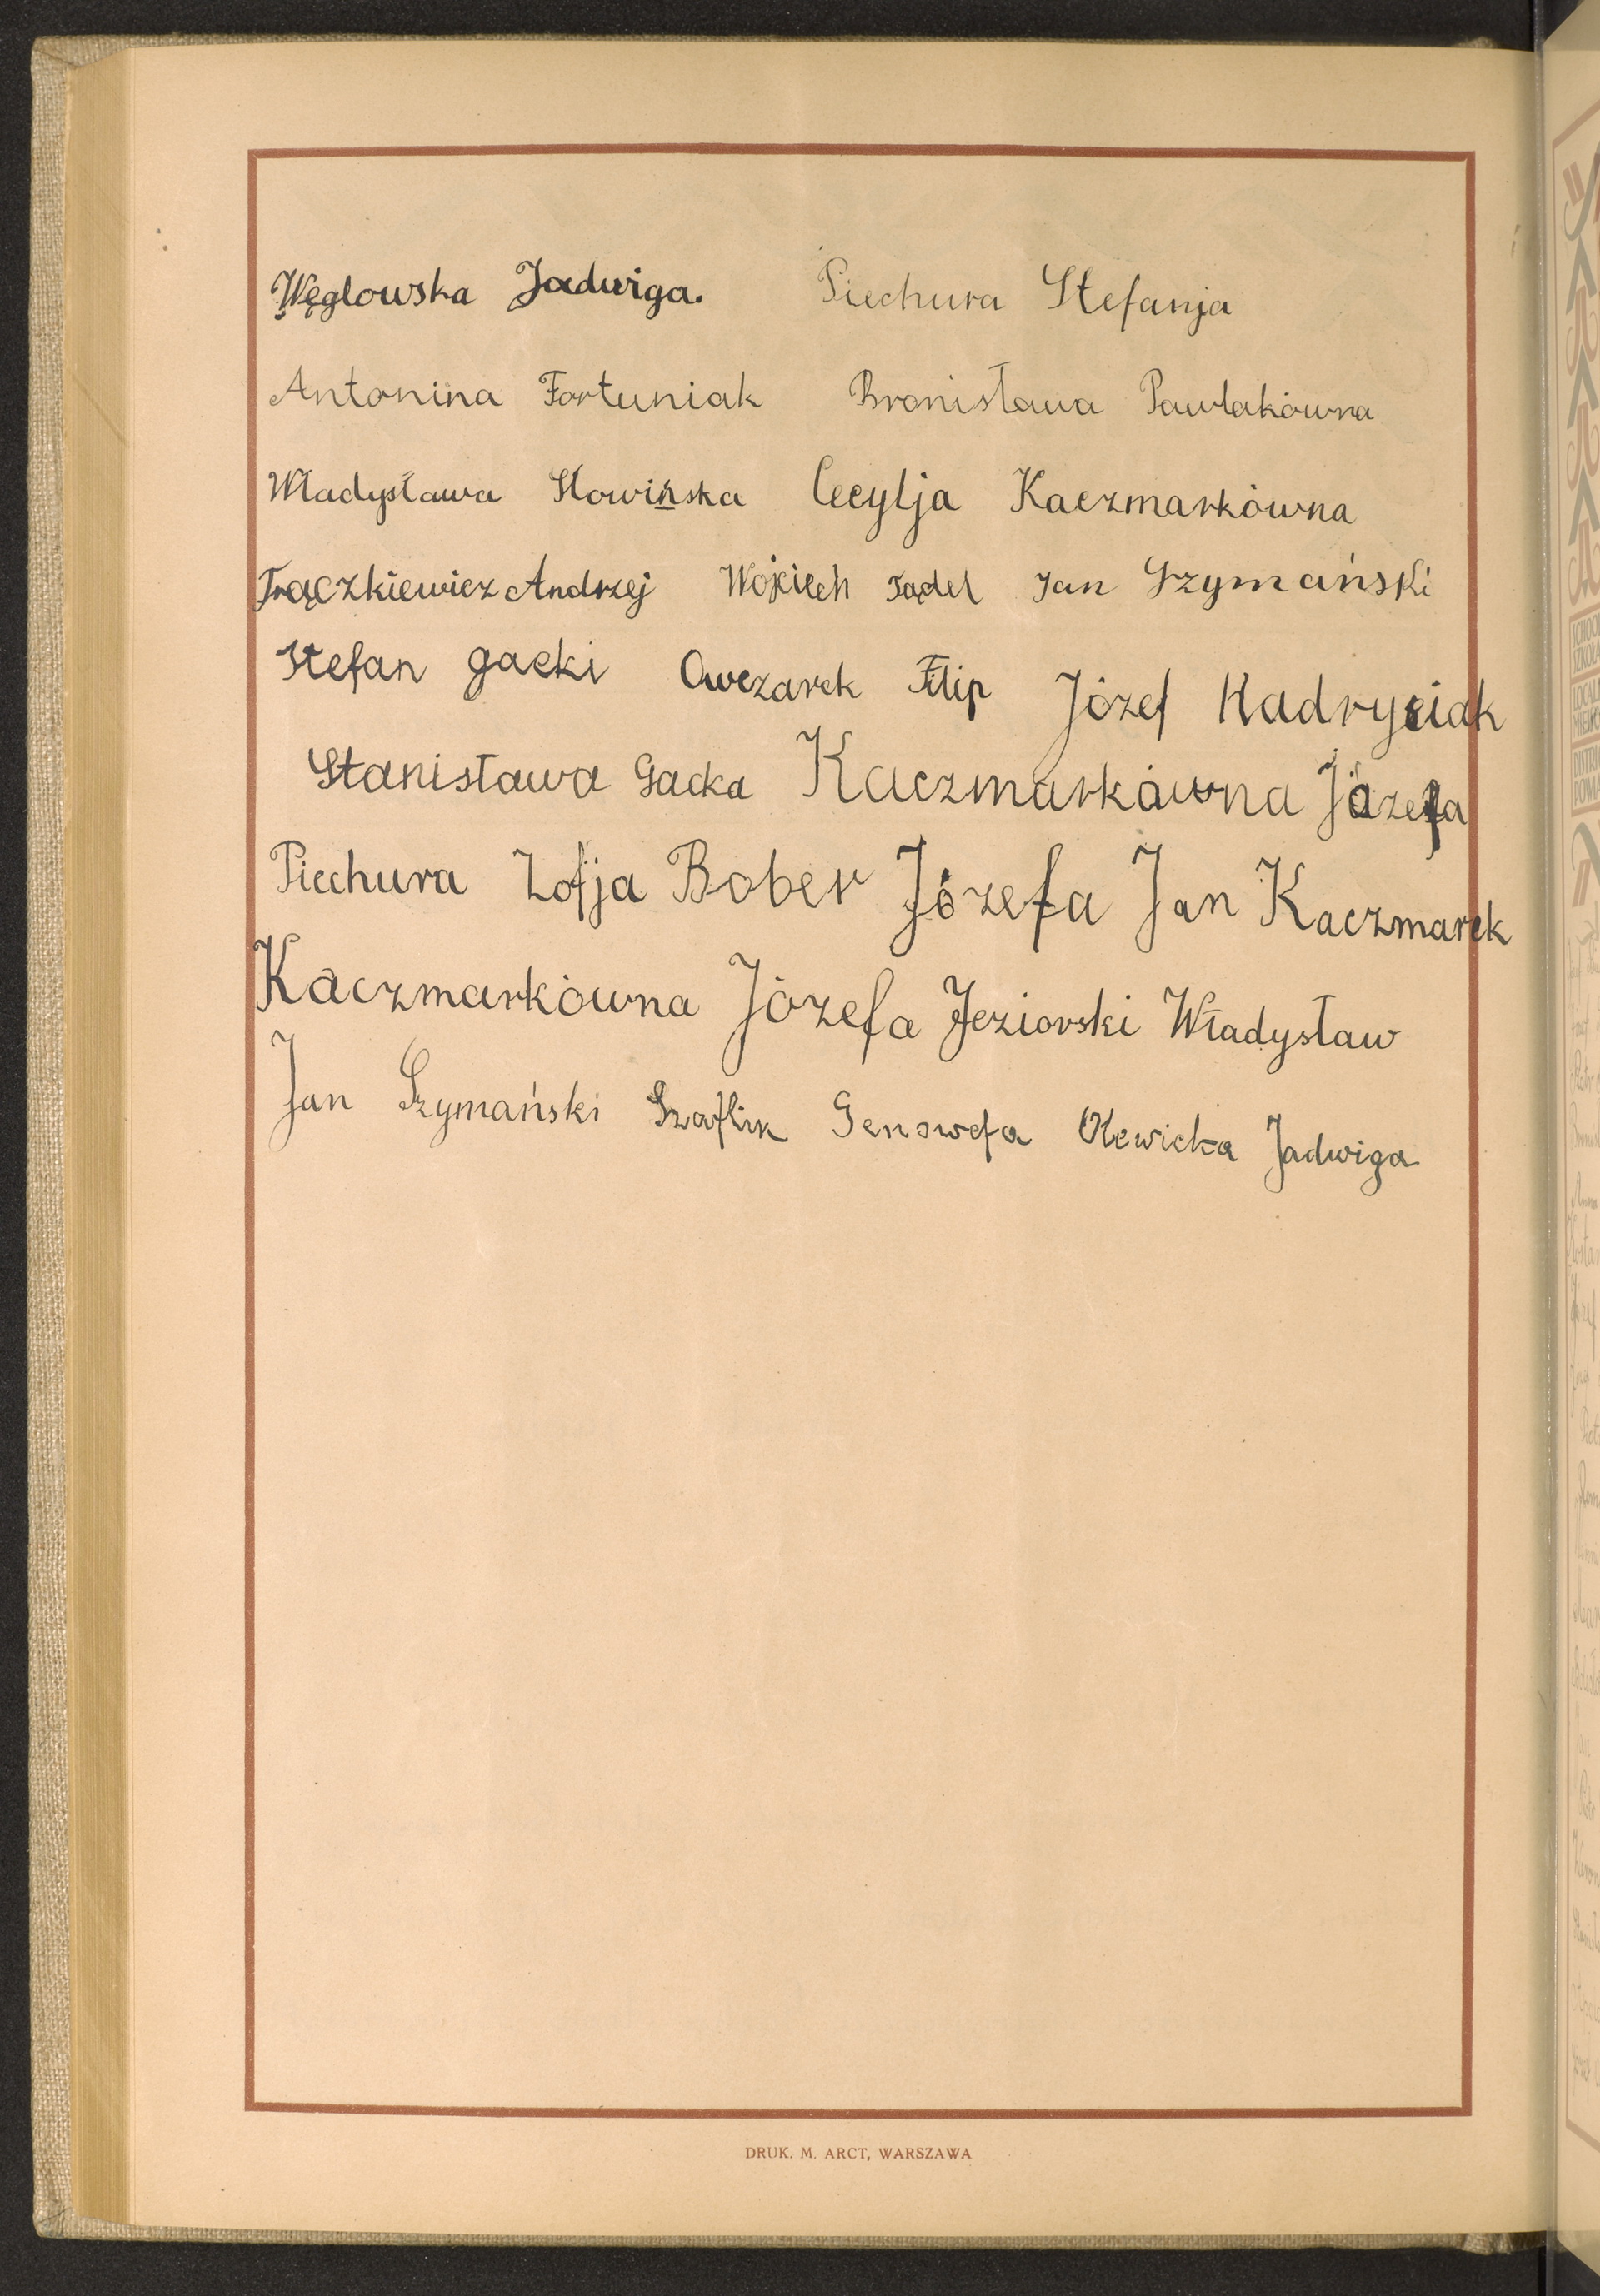 Węglowska Jadwiga. Piechura Stefanja
Antonina Fortuniak Bronisława Pawlakówna
Władysława Słowińska Cecylja Kaczmarkówna
Trączkiewicz Andrzej Wojciech Tądel Jan Szymański
Stefan Gacki Owczarek Filip Józef Kadryciak
Stanisława Gacka Kaczmarkówna Józefa
Piechura Zofja Bober Józefa Jan Kaczmarek
Kaczmarkówna Józefa Jeziorski Władysław
Jan Szymański Szaflik Genowefa Olewicka Jadwiga
DRUK. M. ARCT, WARSZAWA